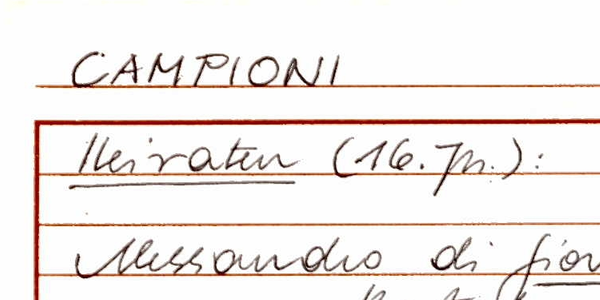 CAMPIONI
Heiraten (16. Jh.):
Alessandro di